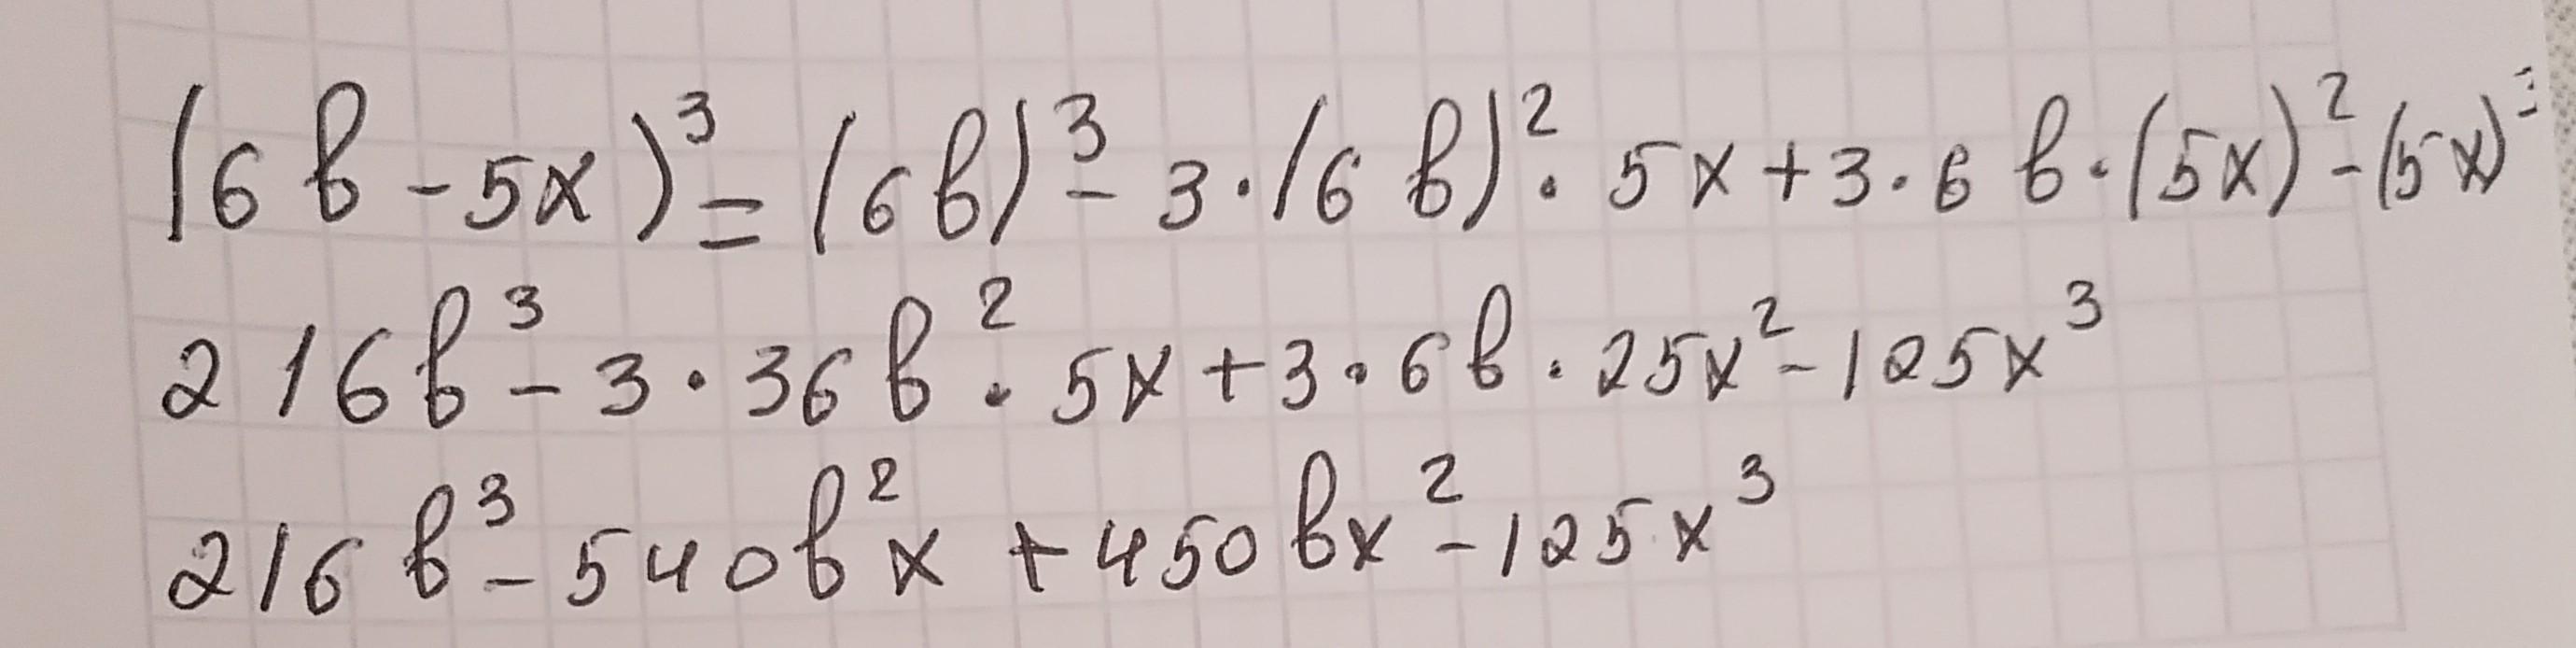 (6b - 5x)³ = (6b)³ - 3 · (6b)² · 5x + 3 · 6b · (5x)² - (5x)³
216b³ - 3 · 36b² · 5x + 3 · 6b · 25x² - 125x³
216b³ - 540b²x + 450bx² - 125x³